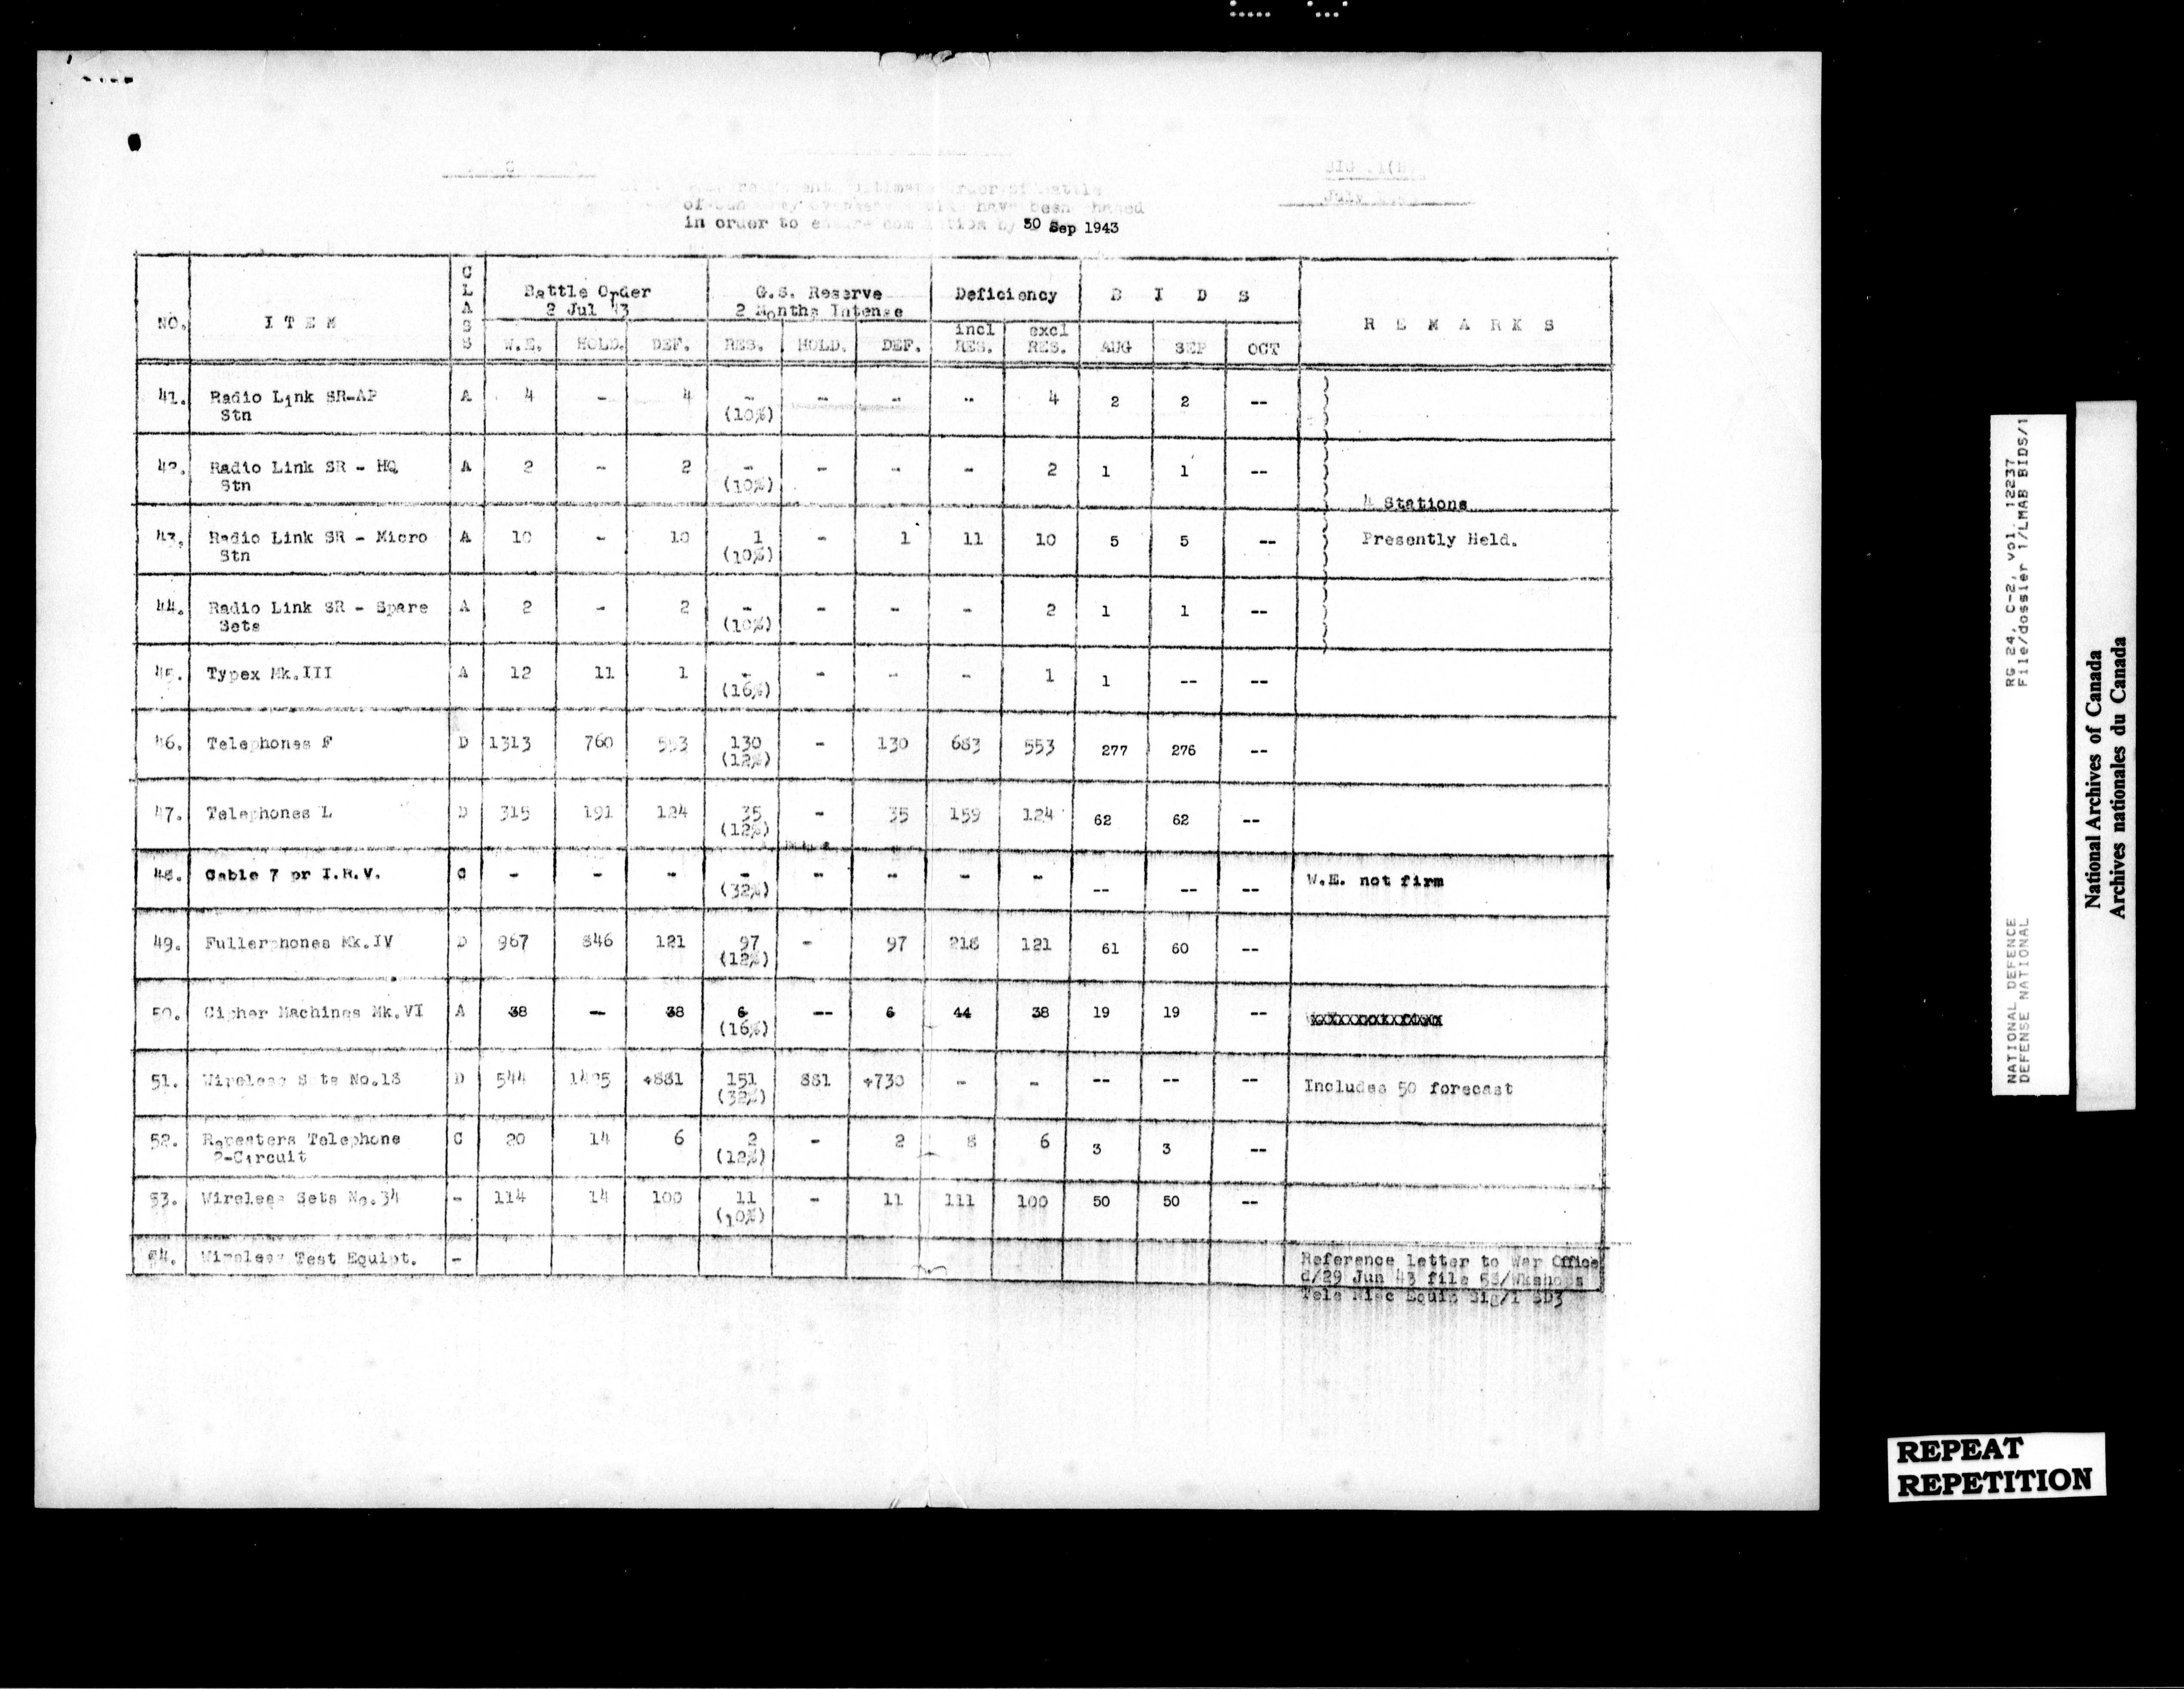 July
Order of Battle
have been based
in order to 30 Sep 1943
NO. I T E M CLASS Battle Order 2 Jul 43 G.S. Reserve 2 Months Intense Deficiency B I D S R E M A R K S
W.E. HOLD. DEF. RES. HOLD. DEF. incl RES. excl RES. AUG SEP OCT
41. Radio Link SR-AP A 4 - 4 - - - - 4 2 2 --
Stn (10%)
42. Radio Link SR - HQ A 2 - 2 - - - - 2 1 1 --
Stn (10%)
4 Stations
43. Radio Link SR - Micro A 10 - 10 1 - 1 11 10 5 5 -- Presently Held.
Stn (10%)
44. Radio Link SR - Spare A 2 - 2 - - - - 2 1 1 --
Sets (10%)
45. Typex Mk.III A 12 11 1 - - - - 1 1 -- --
(16%)
46. Telephones F D 1313 760 553 130 - 130 683 553 277 276 --
(12%)
47. Telephones L D 315 191 124 35 - 35 159 124 62 62 --
(12%)
48. Cable 7 pr I.R.V. C - - - - - - - - -- -- -- W.E. not firm
(32%)
49. Fullerphones Mk.IV D 967 846 121 97 - 97 218 121 61 60 --
(12%)
50. Cipher Machines Mk.VI A 38 -- 38 6 -- 6 44 38 19 19 --
(16%)
51. Wireless Sets No.18 D 544 1425 +881 151 881 +730 - - -- -- -- Includes 50 forecast
(32%)
52. Repeaters Telephone C 20 14 6 2 - 2 8 6 3 3 --
2-Circuit (12%)
53. Wireless Sets No.34 - 114 14 100 11 - 11 111 100 50 50 --
(10%)
54. Wireless Test Equipt. - Reference letter to War Office
d/29 Jun 43 file 58/Wkshops
Tele Misc Equip Sig/1 SD3
RG 24, C-2, vol. 12237
File/dossier 1/LMAB BIDS/1
NATIONAL DEFENCE
DEFENSE NATIONAL
National Archives of Canada
Archives nationales du Canada
REPEAT
REPETITION